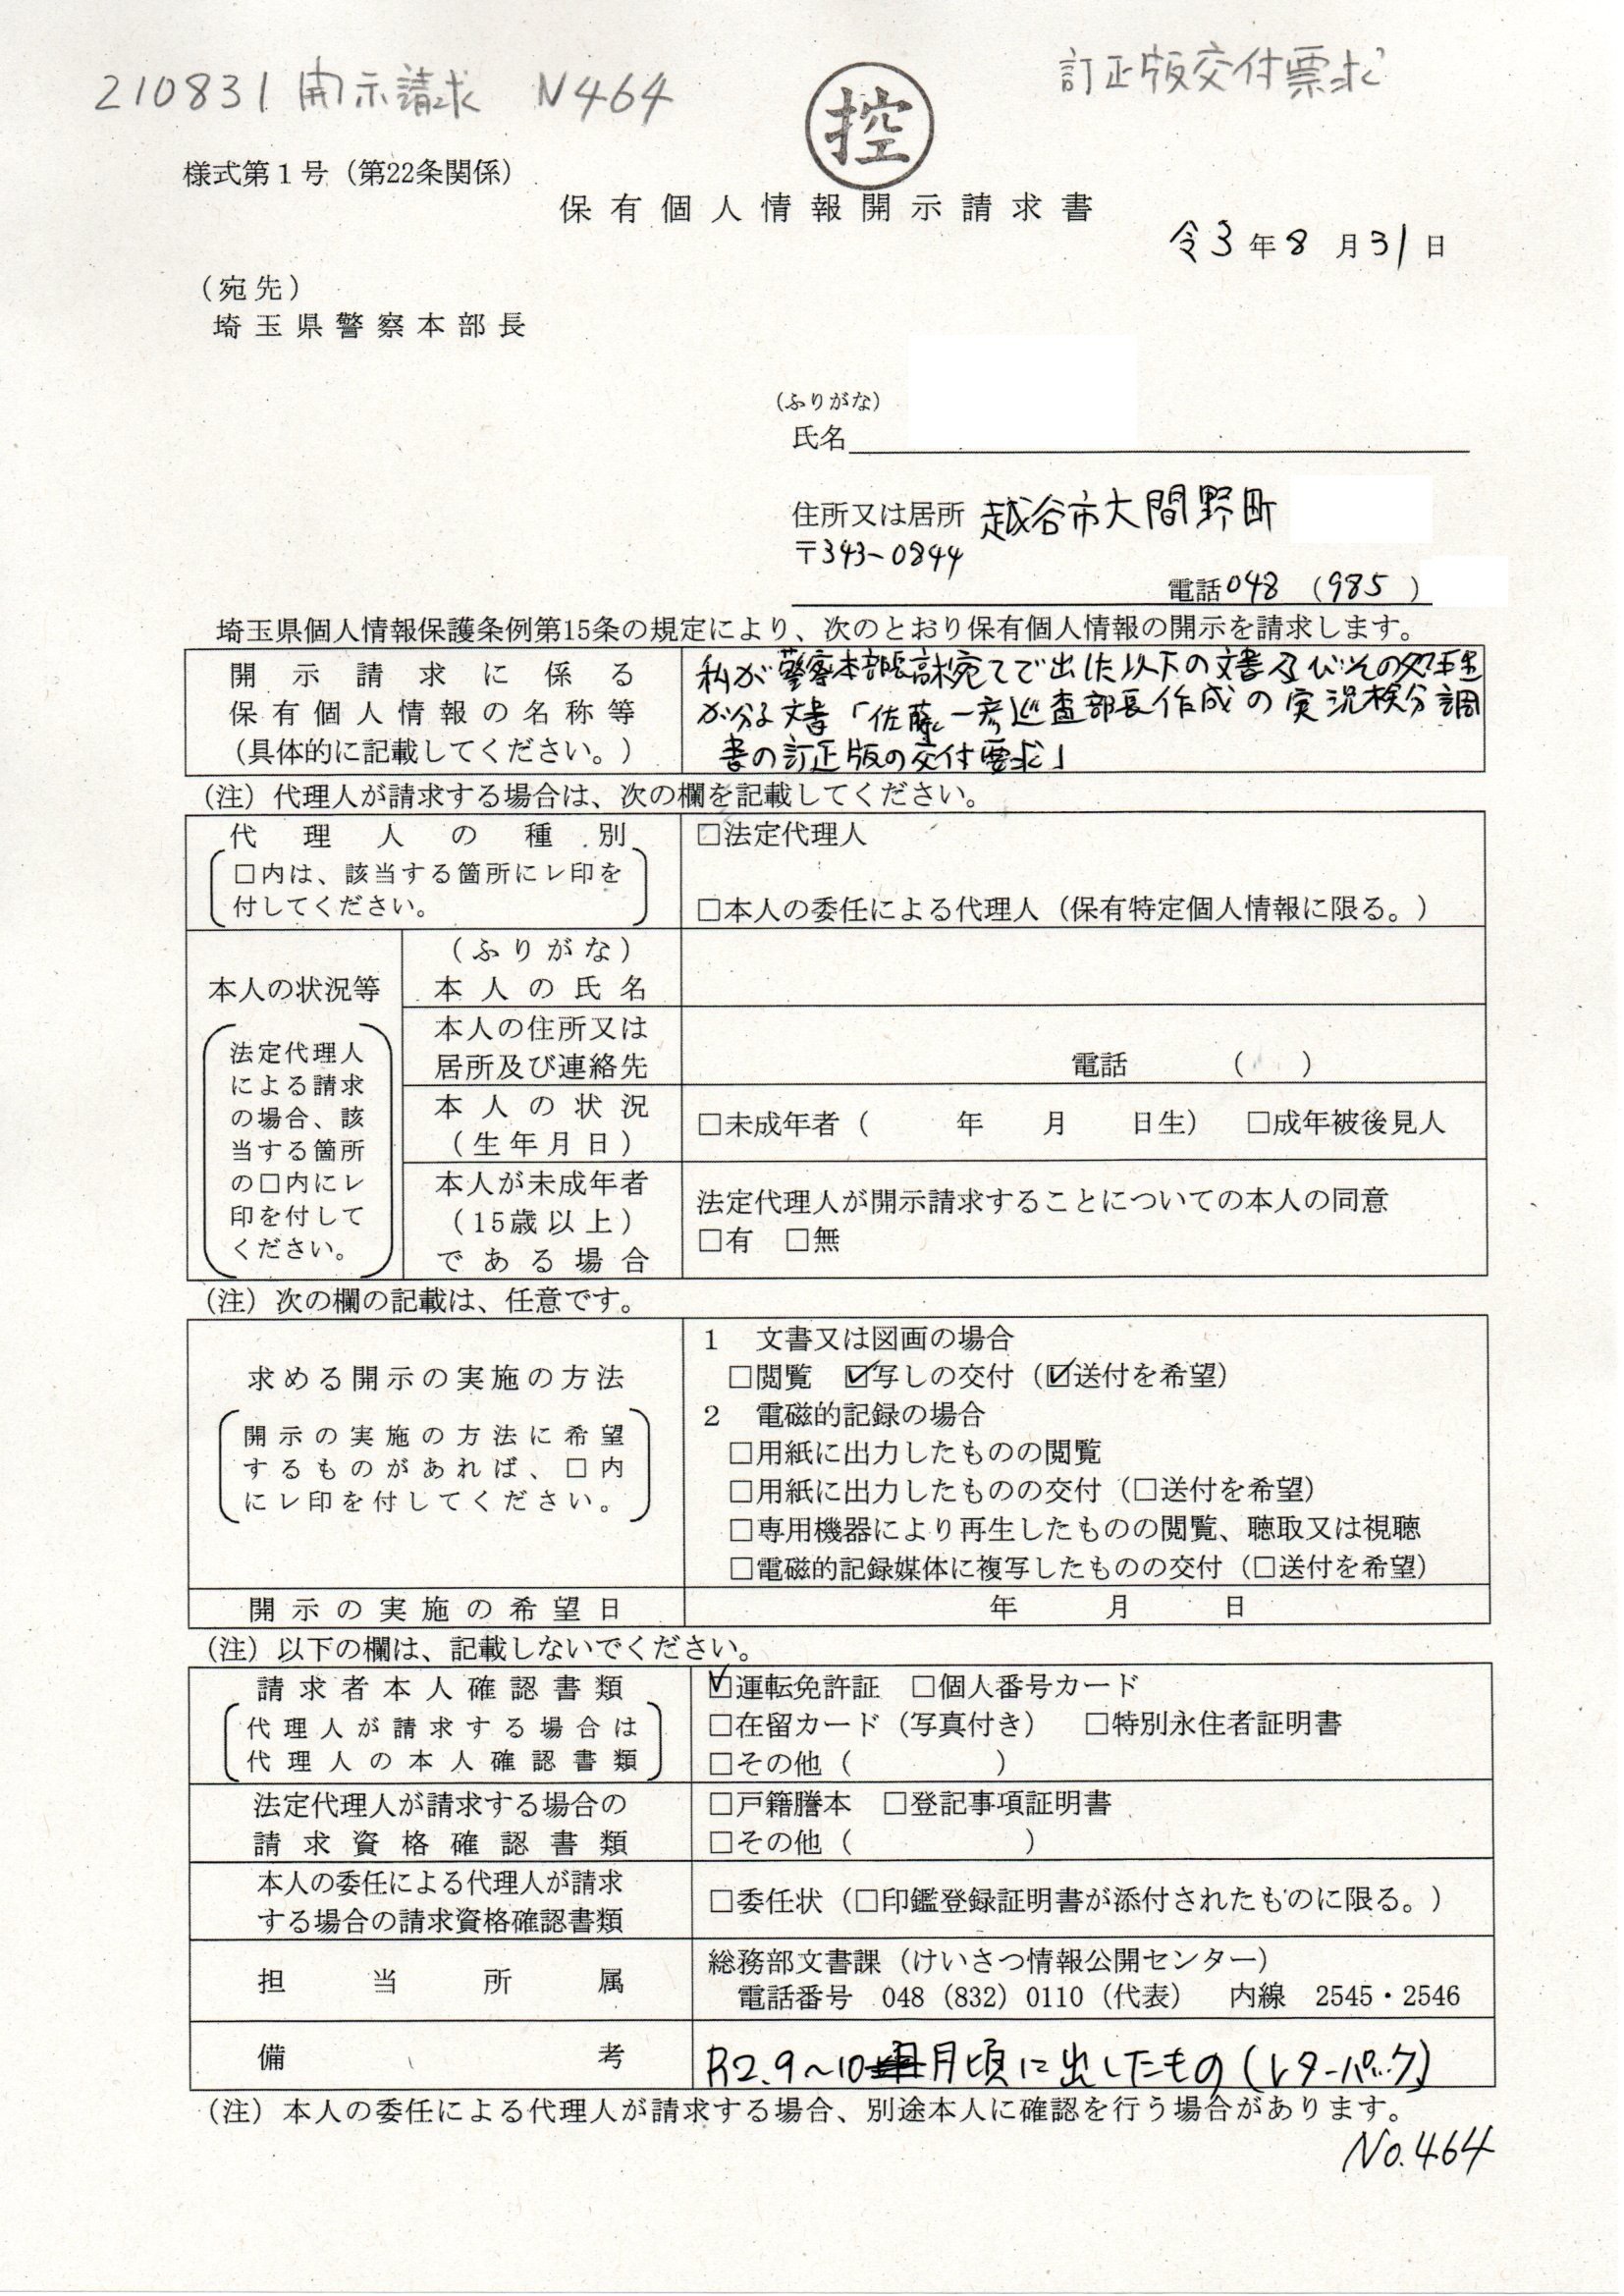 210831 開示請求 N464
訂正版交付票求
控
様式第1号（第22条関係）
保有個人情報開示請求書
令3年8月31日
（宛先）
埼玉県警察本部長
（ふりがな）
氏名
住所又は居所 越谷市大間野町
〒343-0844
電話048（985）
埼玉県個人情報保護条例第15条の規定により、次のとおり保有個人情報の開示を請求します。
開示請求に係る
保有個人情報の名称等
（具体的に記載してください。）
私が警察本部長宛てで出した以下の文書及びその処理
が分る文書「佐藤一彦巡査部長作成の実況検分調
書の訂正版の交付要求」
（注）代理人が請求する場合は、次の欄を記載してください。
代理人の種別
□内は、該当する箇所にレ印を
付してください。
□法定代理人
□本人の委任による代理人（保有特定個人情報に限る。）
本人の状況等
法定代理人
による請求
の場合、該
当する箇所
の□内にレ
印を付して
ください。
（ふりがな）
本人の氏名
本人の住所又は
居所及び連絡先
電話　　（　　）
本人の状況
（生年月日）
□未成年者（　　年　　月　　日生）　□成年被後見人
本人が未成年者
（15歳以上）
である場合
法定代理人が開示請求することについての本人の同意
□有　□無
（注）次の欄の記載は、任意です。
求める開示の実施の方法
開示の実施の方法に希望
するものがあれば、□内
にレ印を付してください。
1　文書又は図画の場合
□閲覧　☑写しの交付（☑送付を希望）
2　電磁的記録の場合
□用紙に出力したものの閲覧
□用紙に出力したものの交付（□送付を希望）
□専用機器により再生したものの閲覧、聴取又は視聴
□電磁的記録媒体に複写したものの交付（□送付を希望）
開示の実施の希望日
年　　月　　日
（注）以下の欄は、記載しないでください。
請求者本人確認書類
代理人が請求する場合は
代理人の本人確認書類
☑運転免許証　□個人番号カード
□在留カード（写真付き）　□特別永住者証明書
□その他（　　　　　）
法定代理人が請求する場合の
請求資格確認書類
□戸籍謄本　□登記事項証明書
□その他（　　　　　　）
本人の委任による代理人が請求
する場合の請求資格確認書類
□委任状（□印鑑登録証明書が添付されたものに限る。）
担当所属
総務部文書課（けいさつ情報公開センター）
電話番号　048（832）0110（代表）　内線　2545・2546
備考
R2.9～10月頃に出したもの（レターパック）
（注）本人の委任による代理人が請求する場合、別途本人に確認を行う場合があります。
No.464